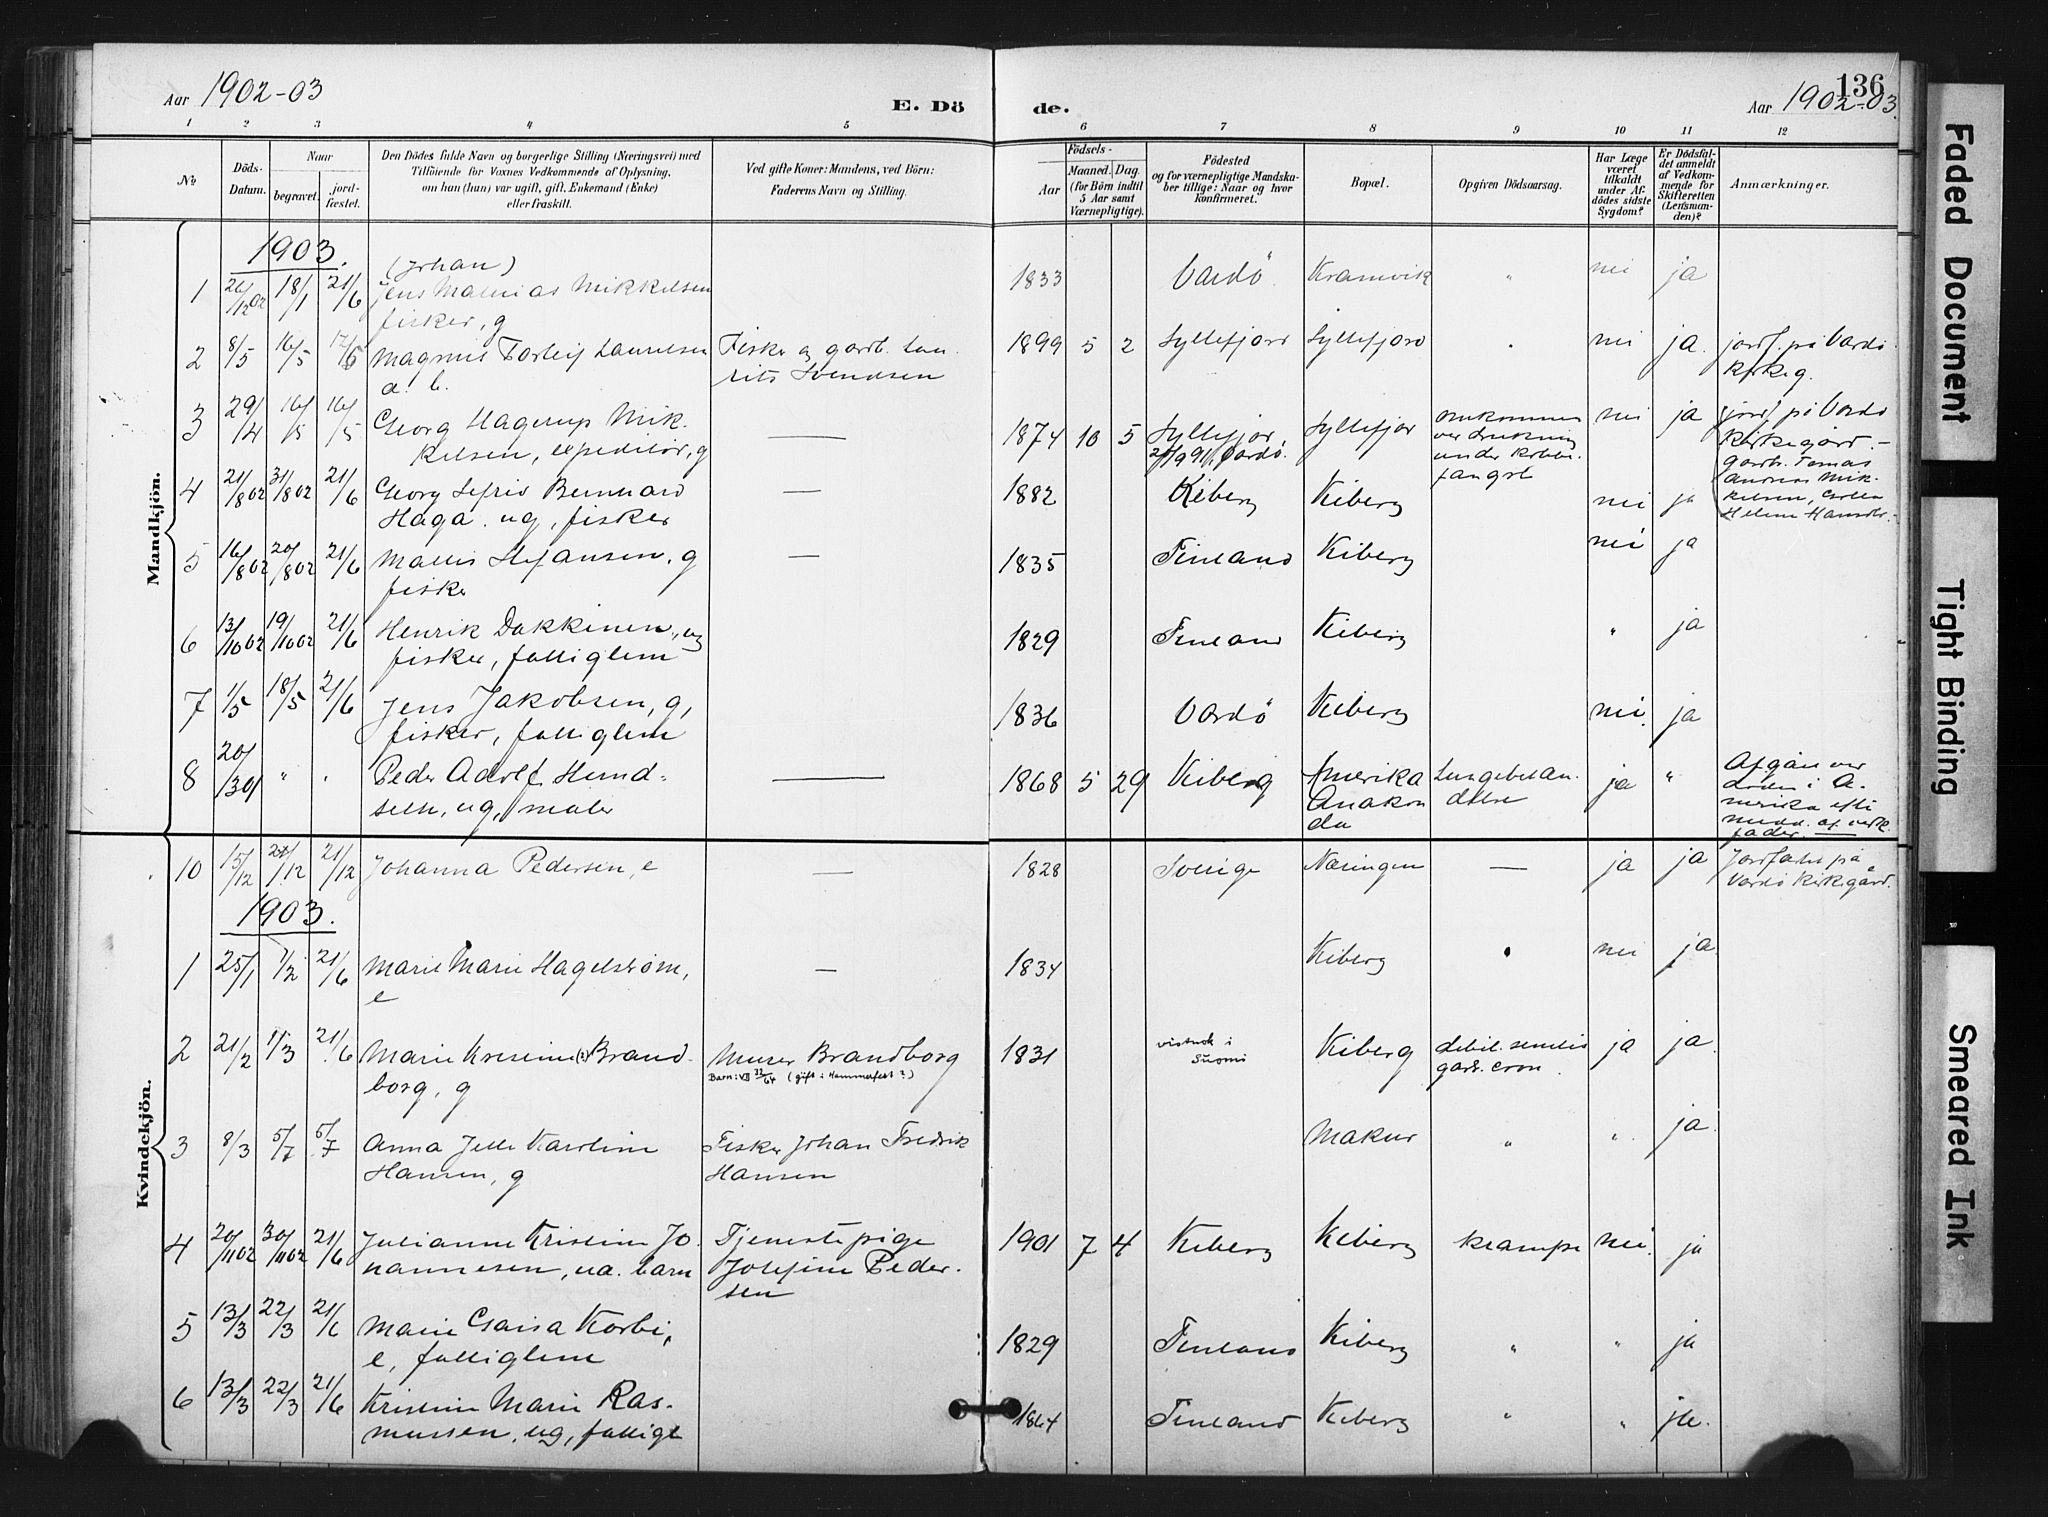 Aar 1902-03
E. Dö
de.
136
Aar 1902-03.
1 2 3 4 5 6 7 8 9 10 11 12
№
Döds-
Datum.
Naar
begravet.
jord-
fæstet.
Den Dödes fulde Navn og borgerlige Stilling (Næringsvei) med
Tilföiende for Voxnes Vedkommende af Oplysning,
om han (hun) var ugift, gift, Enkemand (Enke)
eller fraskilt.
Ved gifte Koner: Mandens, ved Börn:
Faderens Navn og Stilling.
Födsels-
Aar
Maaned. Dag.
(for Börn indtil
5 Aar samt
Værnepligtige).
Födested
og for værnepligtige Mandska-
ber tillige: Naar og hvor
konfirmeret.
Bopæl.
Opgiven Dödsaarsag.
Har Læge
været
tilkaldt
under Af-
dödes sidste
Sygdom?
Er Dödsfal-
det anmeldt
af Vedkom-
mende for
Skifteretten
(Lensman-
den)?
Anmærkninger.
Mandkjön.
1903.
(Johan)
1 18/1 21/6 Jens Mathias Mikkelsen 1833 Vardö Kramvik " nei ja
fisker, g
2 8/5 16/5 17/5 Magnus Torleif Lauritsen Fisker og gardb. Lau- 1899 5 2 Syltefjord Syltefjord " nei ja. jordf. på Vardö
æ. b. rits Svendsen kirkeg.
3 29/4 16/5 16/5 Georg Hagerup Mik- — 1874 10 5 Syltefjor, Syltefjor omkommen nei ja jordf. på Vardö
kelsen, expeditör, g Vardö. ved drukning kirkegård. —
under kobbe- gardb. Tomas
fangst Andreas Mik-
4 21/8 02 31/8 02 21/6 Georg Sefrid Bernhard — 1882 Kiberg Kiberg nei ja kelsen,
Haga. ug, fisker Helene Hansdtr. —
5 16/8 02 20/8 02 21/6 Mattis Stefansen, g — 1835 Finland Kiberg nei ja
fisker
6 13/10 02 19/10 02 21/6 Henrik Dakkinen, ug 1829 Finland Kiberg " ja
fisker, fattiglem
7 1/5 18/5 21/6 Jens Jakobsen, g, 1836 Vardö Kiberg nei. ja
fisker, fattiglem
8 20/1 301 " " Peder Adolf Hemd- — 1868 5 29 Kiberg Amerika Lungebetæn- ja " Afgån ved
seln, ug, maler Anakon delse döden i A-
da merika efter
medd. af verk.
fader. —
Kvindekjön.
10 15/12 21/12 21/12 Johanna Pedersen, e — 1828 Sverige Næringen — ja ja Jordfæstet på
Vardö kirkegård.
1903.
1 25/1 1/2 21/6 Marie Marie Hagelström, — 1834 Kiberg " nei ja.
e
2 21/2 1/3 21/6 Marie Kristine (?) Brand- Murer Brandborg 1831 vistnok i Kiberg debil. senilis ja ja.
borg, g Barn: VII 32/64 (gift i Hammerfest?) Suomi gastr. cron.
3 8/3 5/7 5/7 Anna Jelle Karoline Fisker Johan Fredrik Makur " " ja.
Hansen, g Hansen
4 20/11 02 30/11 02 21/6 Julianne Kristine Jo- Tjenestepige 1901 7 4 Kiberg Kiberg krampe nei. ja
hannesen, uæ. barn Josefine Peder-
sen
5 13/3 22/3 21/6 Marie Caisa Korbi, 1829 Finland Kiberg " " ja
e, fattiglem
6 13/3 22/3 21/6 Kristine Marie Ras- 1864 Finland Kiberg " " ja.
mussen, ug, fattigl
Faded Document
Tight Binding
Smeared Ink